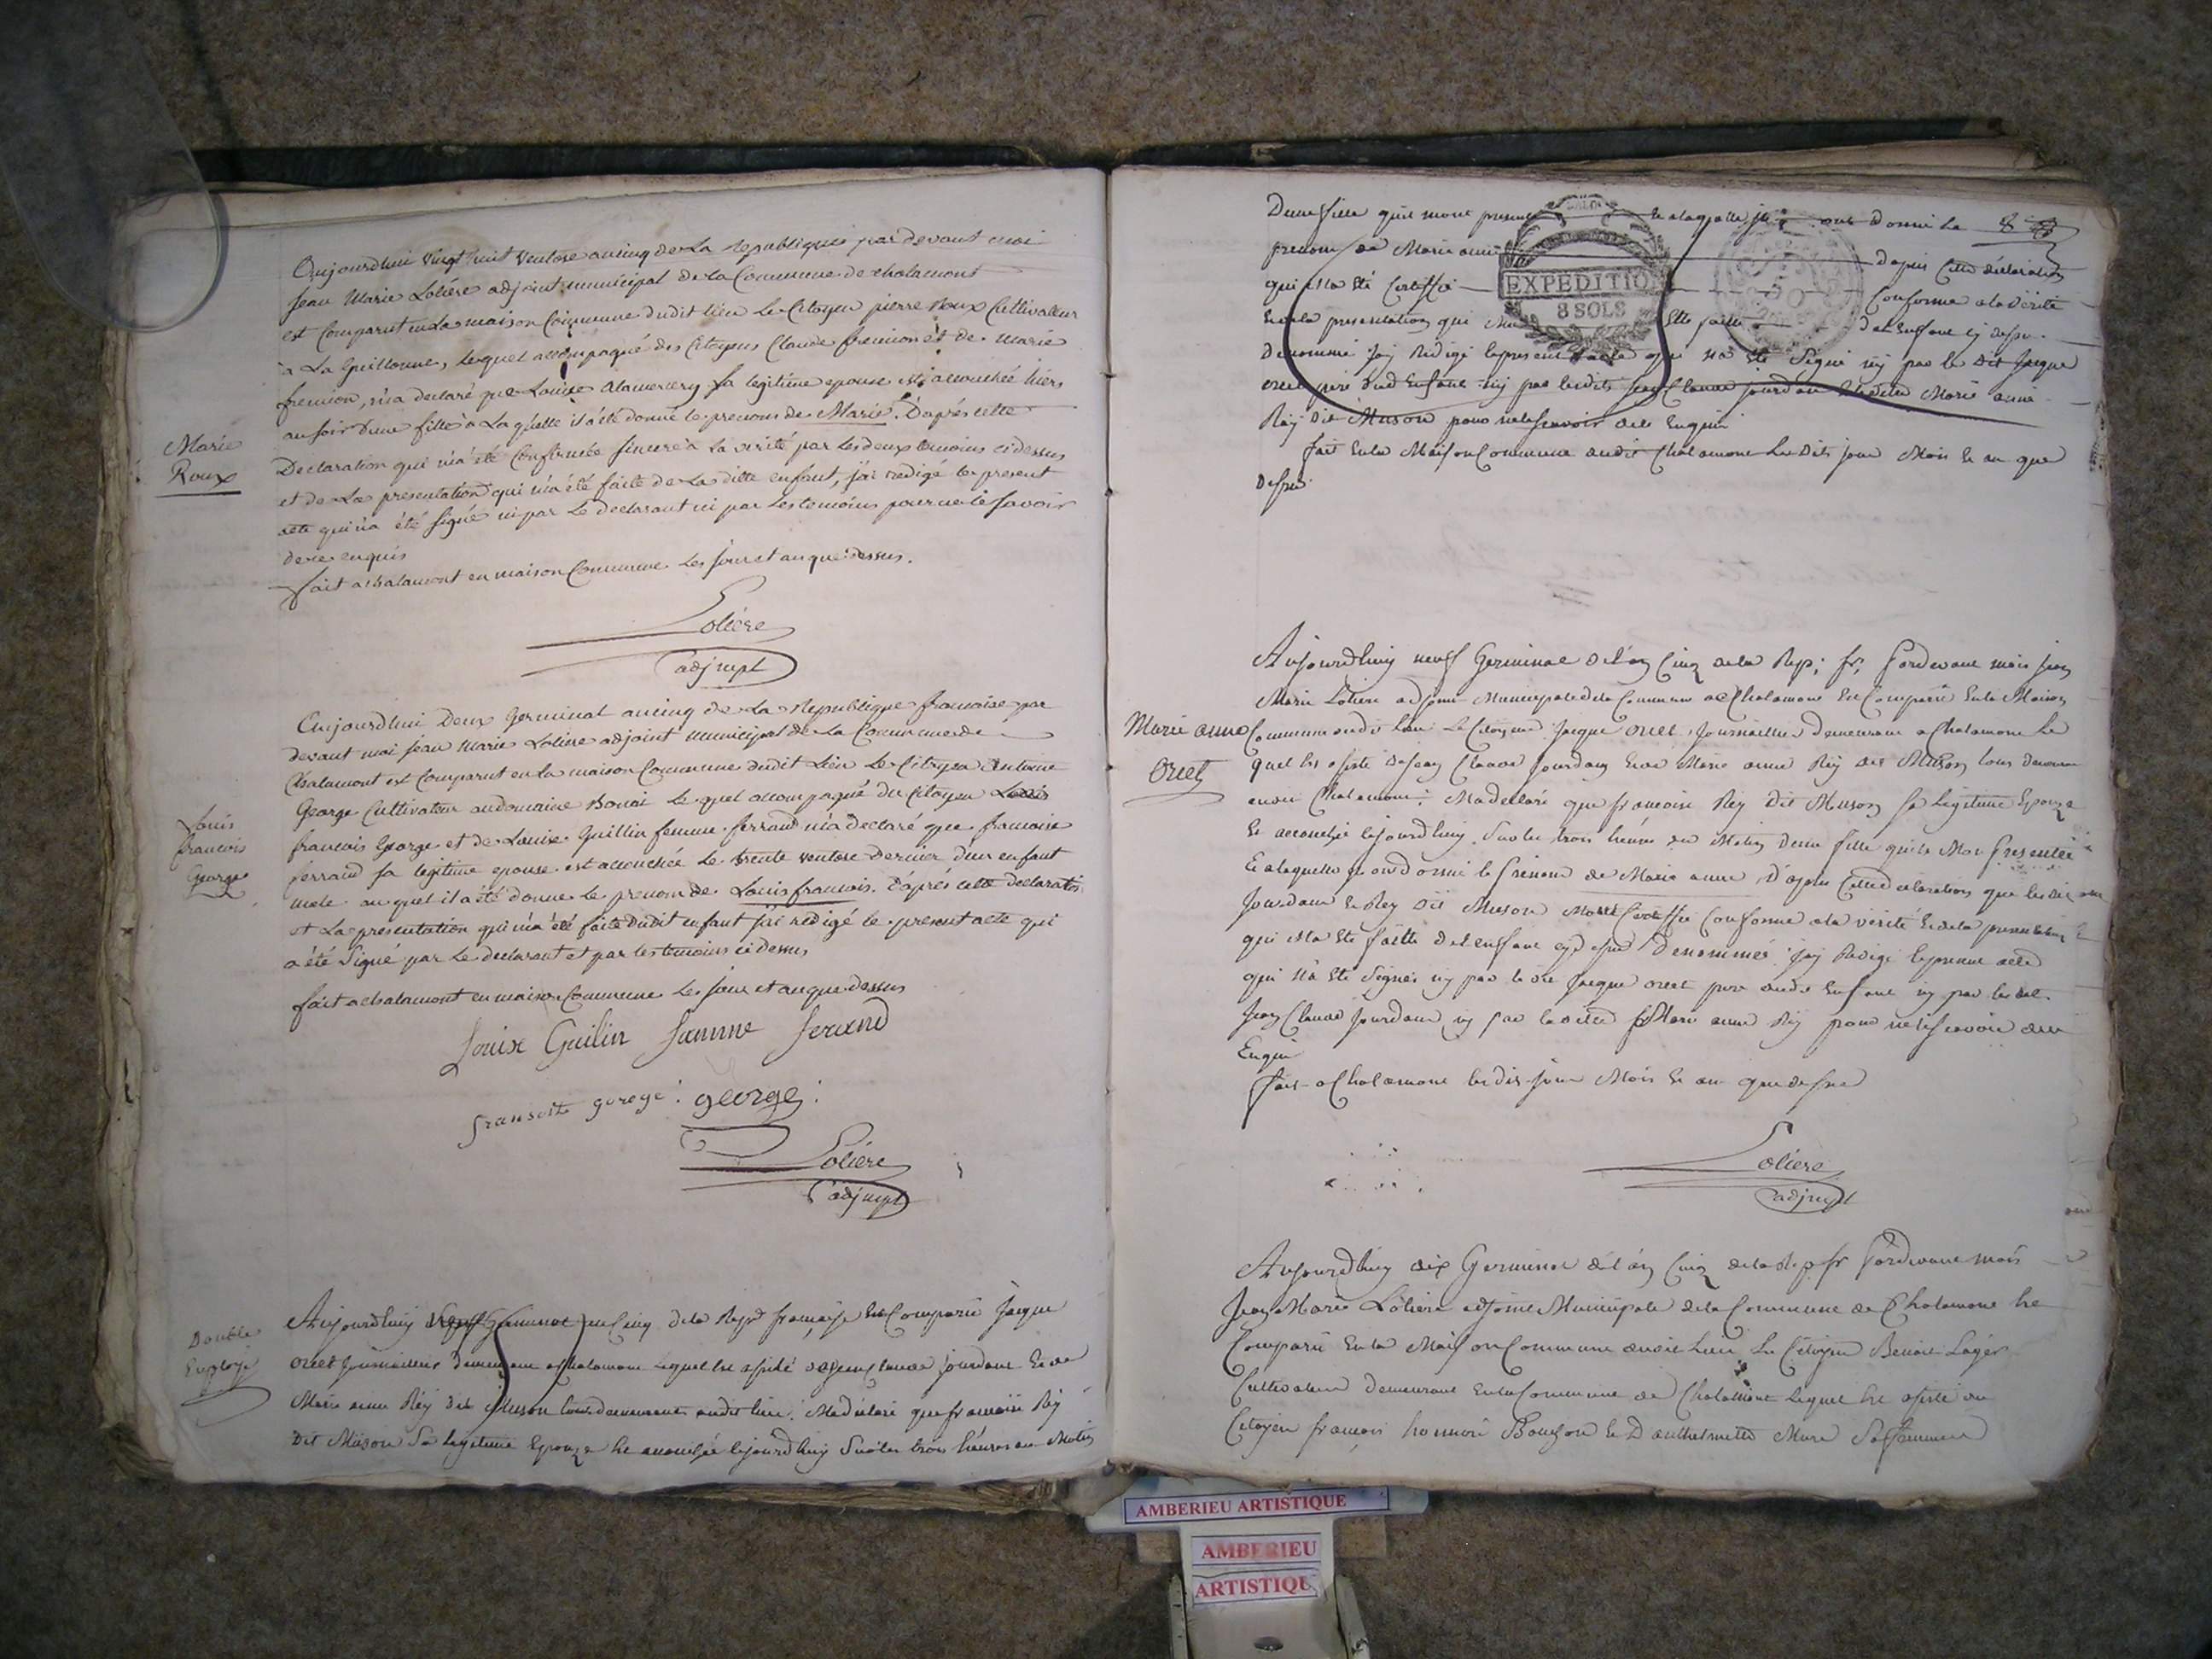 Aujourdhui vingt huit ventose an cinq de la republique par devant moi
Jean Marie Loliere adjoint municipal de la Commune de chalamont
est Comparut en la maison Commune dudit lieu le Citoyen pierre Roux Cultivateur
à la Guillonne, lequel accompagné des Citoyens Claude fremion et de marie
fremion, m'a declaré que Louise sa legitime epouse est accouchée hier
au soir d'une fille à Laquelle il a été donné le prenom de Marie. D'après cette
Marie
Roux
Declaration qui m'a été Confirmée sincere à la verité par les deux temoins ci dessus
et de La presentation qui m'a été faite de La ditte enfant, j'ai redigé le present
acte qui n'a été signé ni par Le declarant ni par les temoins pour ne le savoir
de ce enquis
fait a chalamont en maison Commune Les jour et an que dessus.
Loliere
adj mpl
Aujourdhui Deux Germinal an cinq de La Republique francaise par
devant moi jean Marie Loliere adjoint municipal de La Commune de
Chalamont est Comparut en La maison Commune dudit Lieu Le Citoyen Antoine
George Cultivateur au domaine Bonai Le quel accompagné du Citoyen Louis
Louis
francois
George
francois George et de Louise Guillin femme ferrand m'a declaré que francoise
ferrand sa legitime epouse est accouchée Le trente ventose Dernier d'un enfant
male auquel il a été donné le prenom de Louis francois. D'après cette declaration
et La presentation qui m'a été faite dudit enfant j'ai redigé le present acte qui
a été Signé par Le declarant et par les temoins ci dessus
fait a chalamont en maison Commune Les jour et an que dessus
Louise Guilin famme ferand
fransoit gorege : george :
Loliere
adj mpl
Double
Employé
Aujourdhuy neuf Germinal an Cinq de la Rep francaise est Comparu Jacque
oriet journaillier demeurant a Chalamont lequel est assisté de Jean Claude jourdant et de
Marie anne Rey dit Muson tous demeurants audit lieu. Ma déclaré que francoise Rey
Dit Muson Sa legitime Epouze est accouchée cejourdhuy Sur les trois heures du Matin
Dune fille quil mont presenté et a laquelle ils ont Donné Le 8
prenom de Marie anne dapres cette declaration
qui ma Eté Certiffié Conforme a la Verité
EXPEDITION
8 SOLS
et de la presentation qui Ma Eté faitte de Lenfant cy dessus
Denommé jay Redigé le present acte qui na Eté Signé ny par le dit Jacque
oriet pere dud Enfant ny par lesdits Jean Claude jourdan ladite Marie anne
Rey dit Muson pour ne le Scavoir de ce Enquis
fait En la Maison Commune audit Chalamont Les Dits jour Mois et an que
Dessus
Aujourdhuy neuf Germinal de l'an Cinq de la Rep; fr; Pardevant moi Jean
Marie Loliere adjoint Municipale de la Commune de Chalamont Est Comparu En la Maison
Marie anne
Oriet
Commune audit lieu Le Citoyen Jacque oriet, journaillier Demeurant a Chalamont Le
quel Est assisté de Jean Claude Jourdan et de Marie anne Rey dit Muson tous demeurant
audit Chalamont. Ma declaré que francoise Rey Dit Muson Sa legitime Epouze
Et accouchée cejourdhuy Sur les trois heures du Matin Dune fille quils Mon Presentée
Et a laquelle ils ont donné le Prenom de Marie anne, D'après Cette declaration que lesdits
Jourdan et Rey Dit Muson Mont Certiffié Conforme a la vérité Et de la presentation
qui Ma Eté faitte de Lenfant cy dessus Denommés jay Redigé le present acte
qui n'a Eté Signé ny par le dit Jacque oriet pere dudit Enfant ny par ledit
Jean Claude Jourdan ny par la ditte Marie anne Rey pour ne le Scavoir de ce
Enquis
fait a Chalamont les dits jour Mois et an que dessus
Loliere
adj mpl
Aujourdhuy dix Germinal de l'an Cinq de la Rep fr Pardevant moi
Jean Marie Loliere adjoint Municipale de la Commune de Chalamont Est
Comparu En la Maison Commune audit lieu Le Citoyen Benoit Lager
Cultivateur Demeurant En la Commune de Chalamont lequel Est assisté du
Citoyen francois honnoré Bouchon Et D'anthelmette Mure Sa femme
AMBERIEU ARTISTIQUE
AMBERIEU
ARTISTIQU